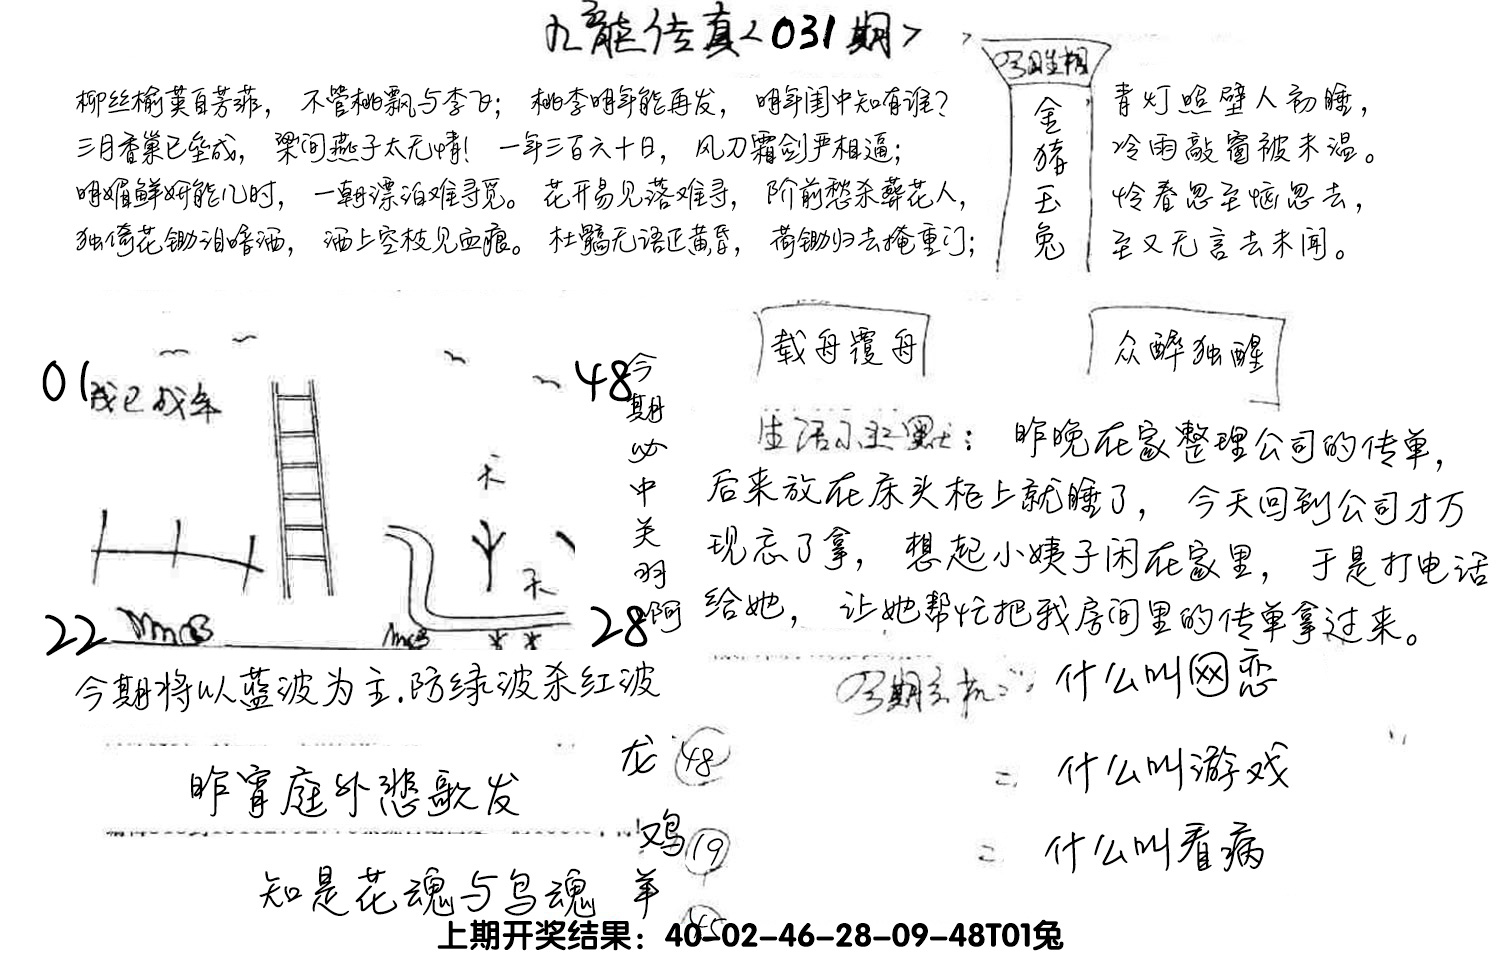 九龙传真<031期>
今日生相
金猪玉兔
柳丝榆荚自芳菲，不管桃飘与李飞；桃李明年能再发，明年闺中知有谁？
三月香巢已垒成，梁间燕子太无情！一年三百六十日，风刀霜剑严相逼；
明媚鲜妍能几时，一朝漂泊难寻觅。花开易见落难寻，阶前愁杀葬花人，
独倚花锄泪暗洒，洒上空枝见血痕。杜鹃无语正黄昏，荷锄归去掩重门；
青灯照壁人初睡，
冷雨敲窗被未温。
怜春忽至恼忽去，
至又无言去未闻。
01
我已成年
48
天
天
22
28
今期必中关羽啊
今期将以蓝波为主.防绿波杀红波
载舟覆舟
众醉独醒
生活小幽默：昨晚在家整理公司的传单，
后来放在床头柜上就睡了，今天回到公司才万
现忘了拿，想起小姨子闲在家里，于是打电话
给她，让她帮忙把我房间里的传单拿过来。
今期玄机：什么叫网恋
= 什么叫游戏
= 什么叫看病
昨宵庭外悲歌发
知是花魂与鸟魂
龙 48
鸡 19
羊 45
上期开奖结果：40-02-46-28-09-48T01兔